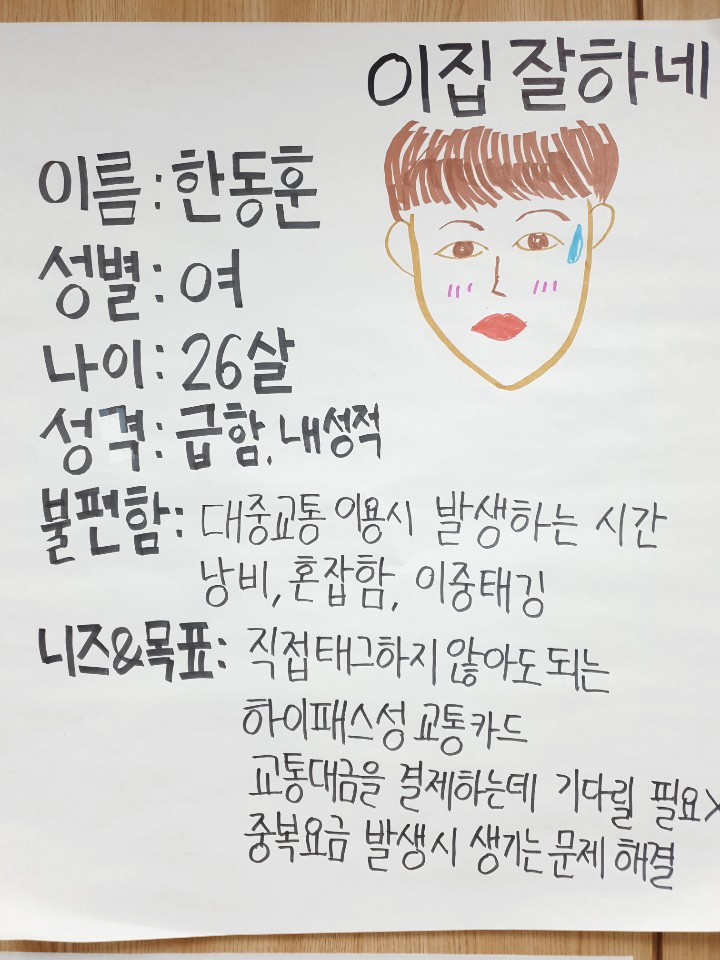 이집 잘하네
이름 : 한동훈
성별 : 여
나이 : 26살
성격 : 급함, 내성적
불편함 : 대중교통 이용시 발생하는 시간
낭비, 혼잡함, 이중태깅
니즈&목표 : 직접 태그하지 않아도 되는
하이패스성 교통카드
교통대금을 결제하는데 기다릴 필요X
중복요금 발생시 생기는 문제 해결